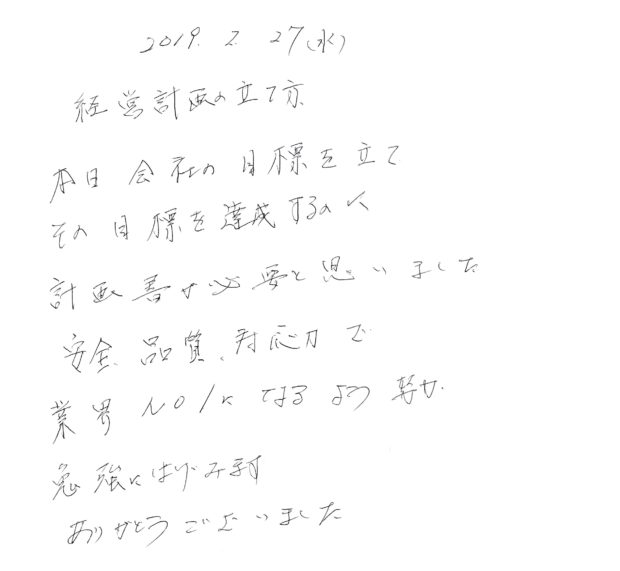 2019. 2. 27(水)
経営計画の立て方
本日 会社の目標を立て
その目標を達成するのに
計画書が必要と思いました
安全、品質、対応力で
業界NO1になるよう努力
勉強にはげみます
ありがとうございました